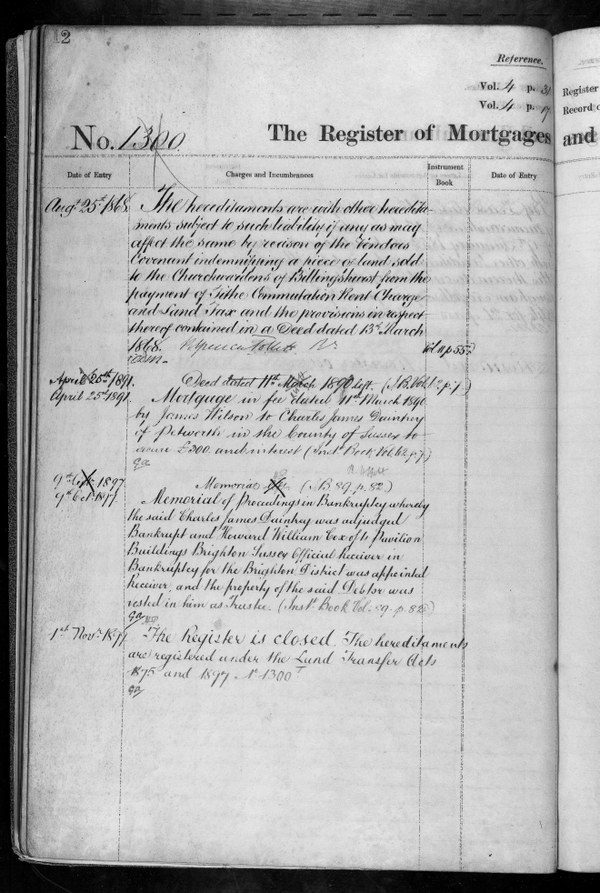 2
Reference.
Vol. 4 p. 31
Vol. 4 p. 17
Register
Record o
No. 1300
The Register of Mortgages and
Date of Entry
Charges and Incumbrances
Instrument Book
Date of Entry
Augt 25th 1868
The hereditaments are with other heredita-
ments subject to such liability if any as may
affect the same by reason of the Vendors
Covenant indemnifying a piece of land sold
to the Churchwardens of Billingshurst from the
payment of Tithe Commutation Rent Charge
and Land Tax and the provisions in respect
thereof contained in a Deed dated 13th March
1868.
Vol. 11 p 55
April 25th 1891.
Deed dated 11th March 1890 left. (I.B. Vol. 62 p. 7.)
April 25th 1891
Mortgage in fee dated 11th March 1890
by James Wilson to Charles James Daintrey
of Petworth in the County of Sussex to
secure £300 and interest (Inst. Book Vol. 62 p. 7.)
9th 1897
Memorial (I.B 89. p. 82.)
9th Oct 1897
Memorial of Proceedings in Bankruptcy whereby
the said Charles James Daintrey was adjudged
Bankrupt and Howard William Cox of 4 Pavilion
Buildings Brighton Sussex Official Receiver in
Bankruptcy for the Brighton District was appointed
Receiver, and the property of the said Debtor was
vested in him as Trustee. (Inst. Book Vol. 89. p. 82)
1st Novr. 1897
The Register is closed. The hereditaments
are registered under the Land Transfer Acts
1875 and 1897 No 1300